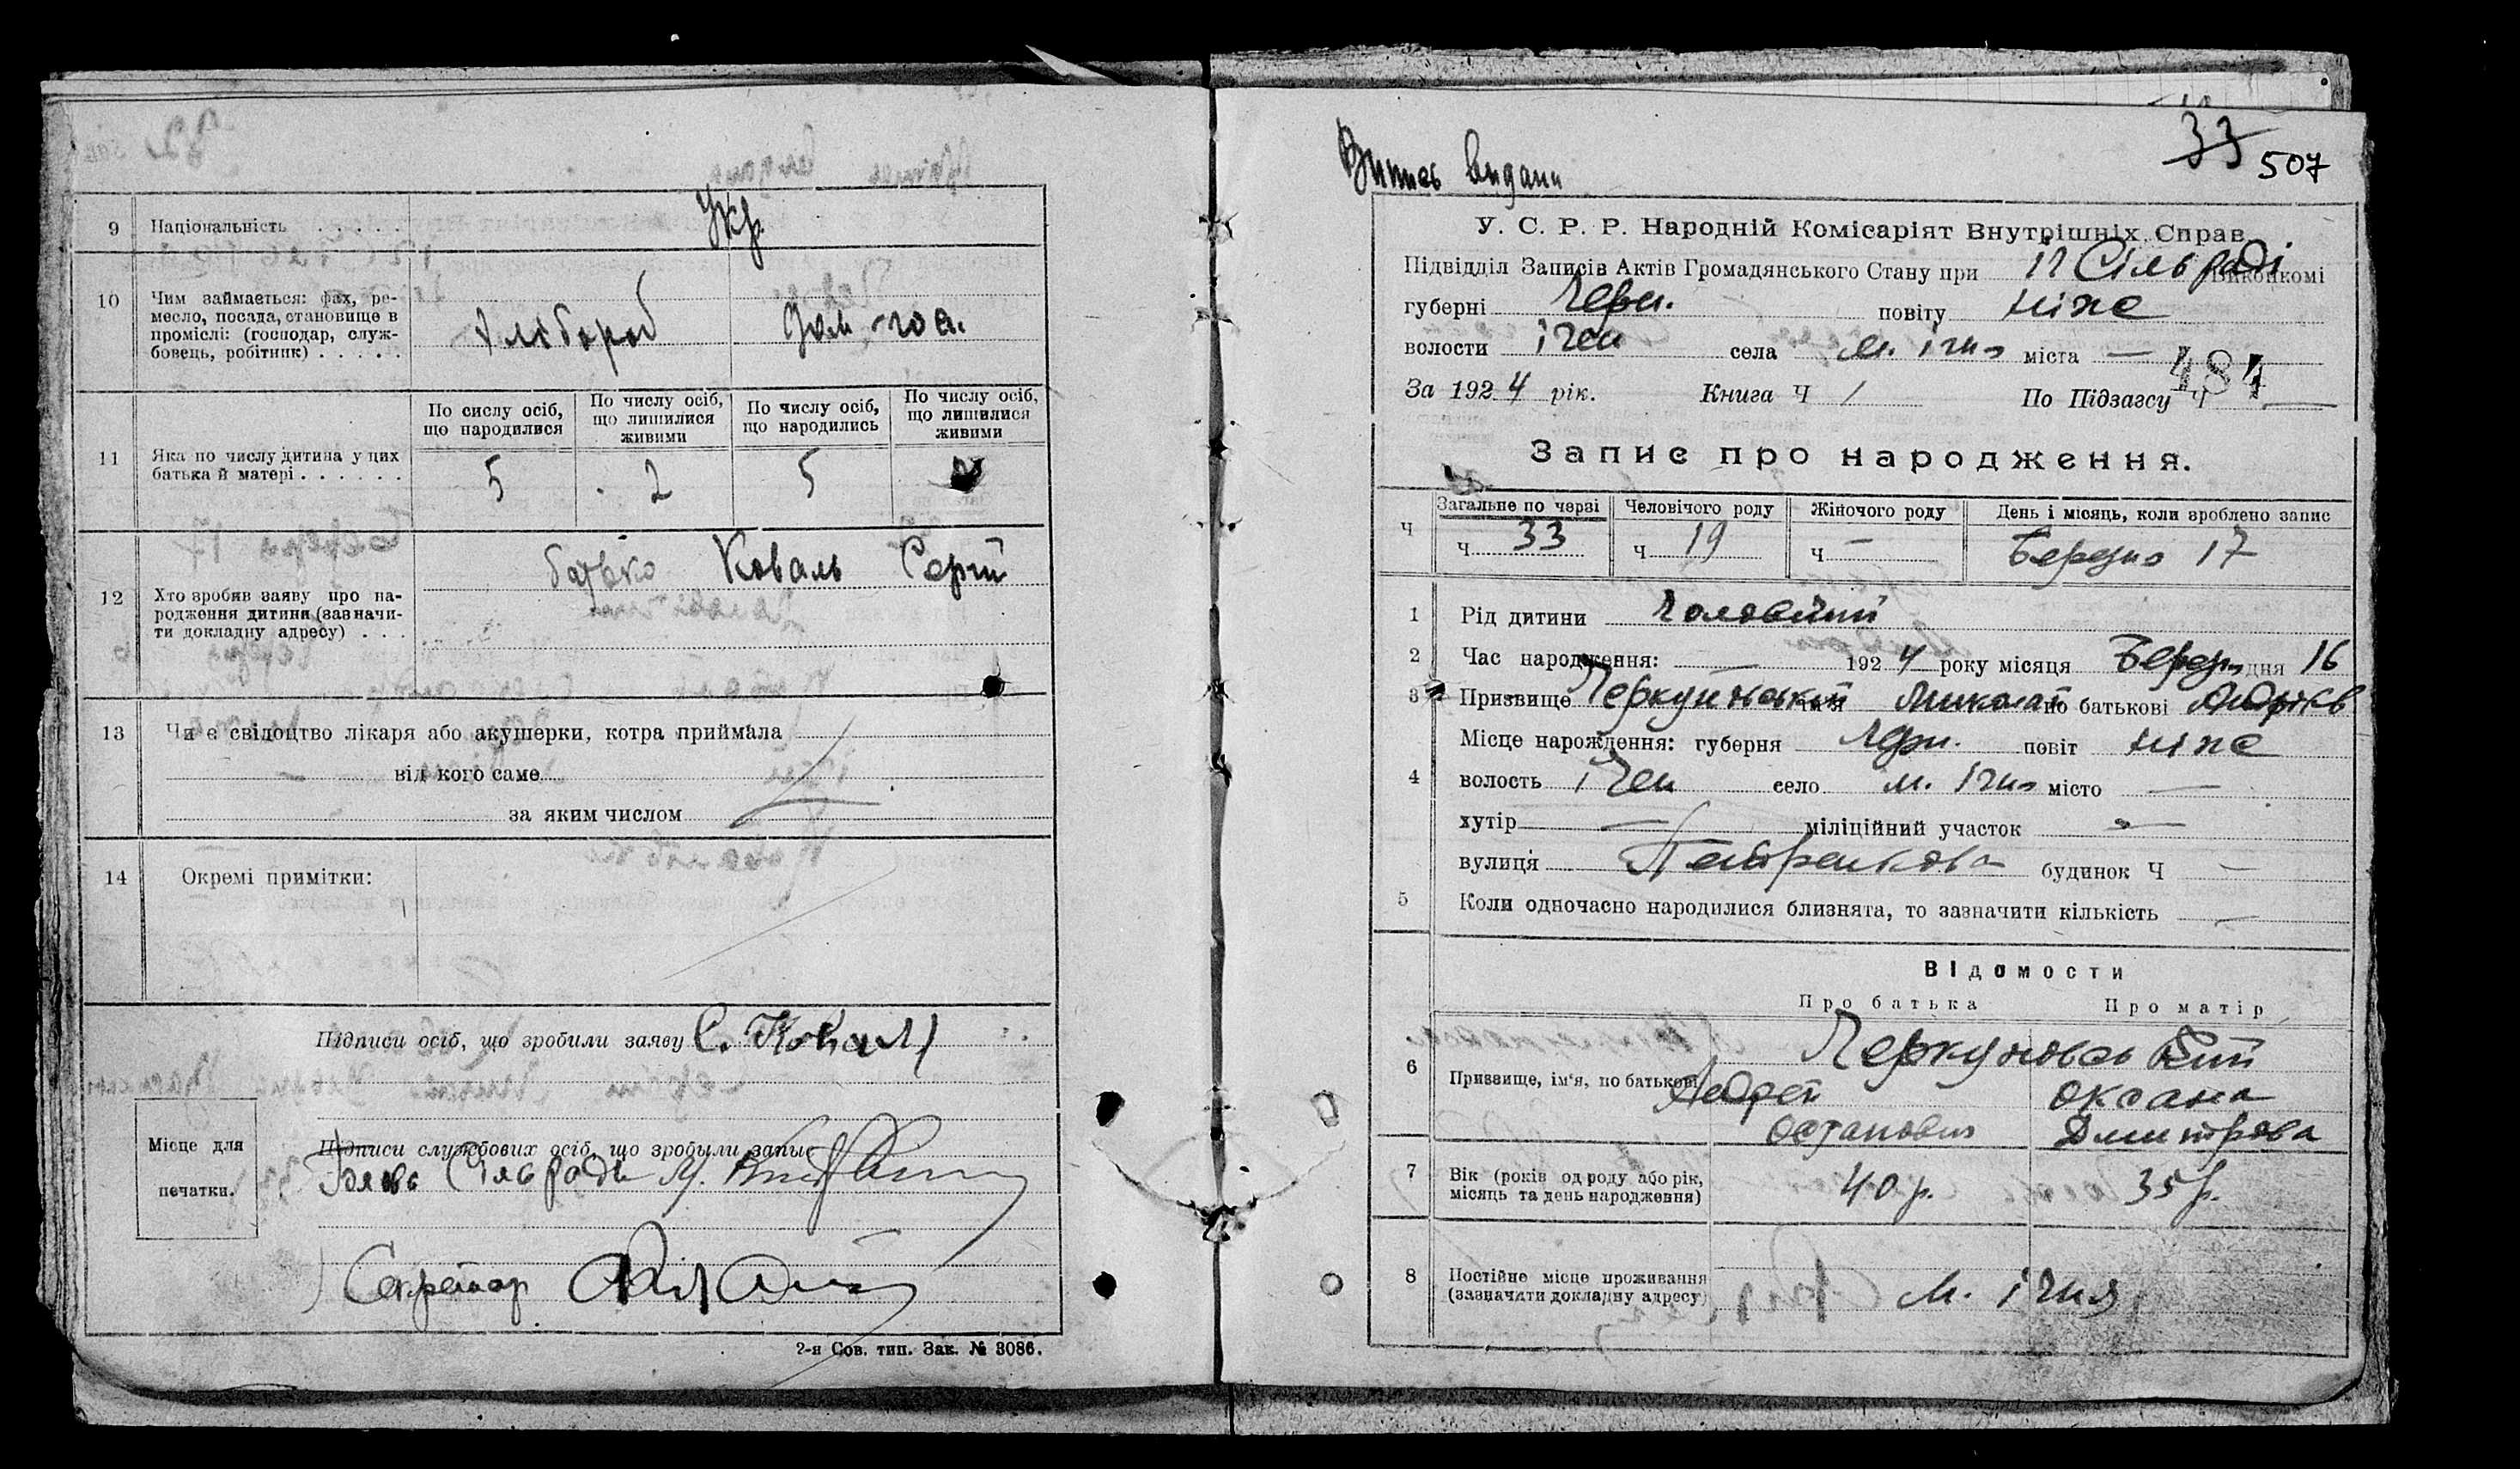 9 Національність . . . . . Укр.
10 Чим займається: фах, ре-
месло, посада, становище в
промислі: (господар, служ-
бовець, робітник) . . . . .
Хлібороб Дом. гос.
По сислу осіб, що народилися
По числу осіб, що лишилися живими
По числу осіб, що народились
По числу осіб, що лишилися живими
11 Яка по числу дитина у цих
батька й матері . . . . . .
5 2 5
12 Хто зробив заяву про на-
родження дитини (зазначи-
ти докладну адресу) . . .
батько Коваль Сергій
13 Чи є свідоцтво лікаря або акушерки, котра приймала
від кого саме
за яким числом
14 Окремі примітки:
Підписи осіб, що зробили заяву С. Коваль
Підписи службових осіб, що зробили запис
Сільради
Секретар
Місце для
печатки.
2-я Сов. тип. Зак. № 3086.
33 507
Витись видани
У. С. Р. Р. Народній Комісаріят Внутрішніх Справ
Підвідділ Записів Актів Громадянського Стану при Сільраді Виконкомі
губерні Черн. повіту Ніже
волости Ічен села м. Ічня міста —
484
За 1924 рік. Книга Ч 1 По Підзагсу Ч —
Запис про народження.
Загальне по черзі Человічого роду Жіночого роду День і місяць, коли зроблено запис
Ч Ч 33 Ч 19 Ч — Березня 17
1 Рід дитини Чоловічий
2 Час народження: — 1924 року місяця Березня дня 16
3 Призвище ім'я Миколай по батькові Андріїв
Місце нарождення: губерня Черн. повіт Ніже
4 волость Ічен село м. Ічня місто —
хутір — міліційний участок —
вулиця Петренкова будинок Ч —
5 Коли одночасно народилися близнята, то зазначити кількість —
Відомости
Про батька Про матір
6 Призвище, ім'я, по батькові
Андрей Оксана
Остапович Дмитрова
7 Вік (років од роду або рік,
місяць та день народження)
40 р. 35 р.
8 Постійне місце проживання
(зазначити докладну адресу)
м. Ічня